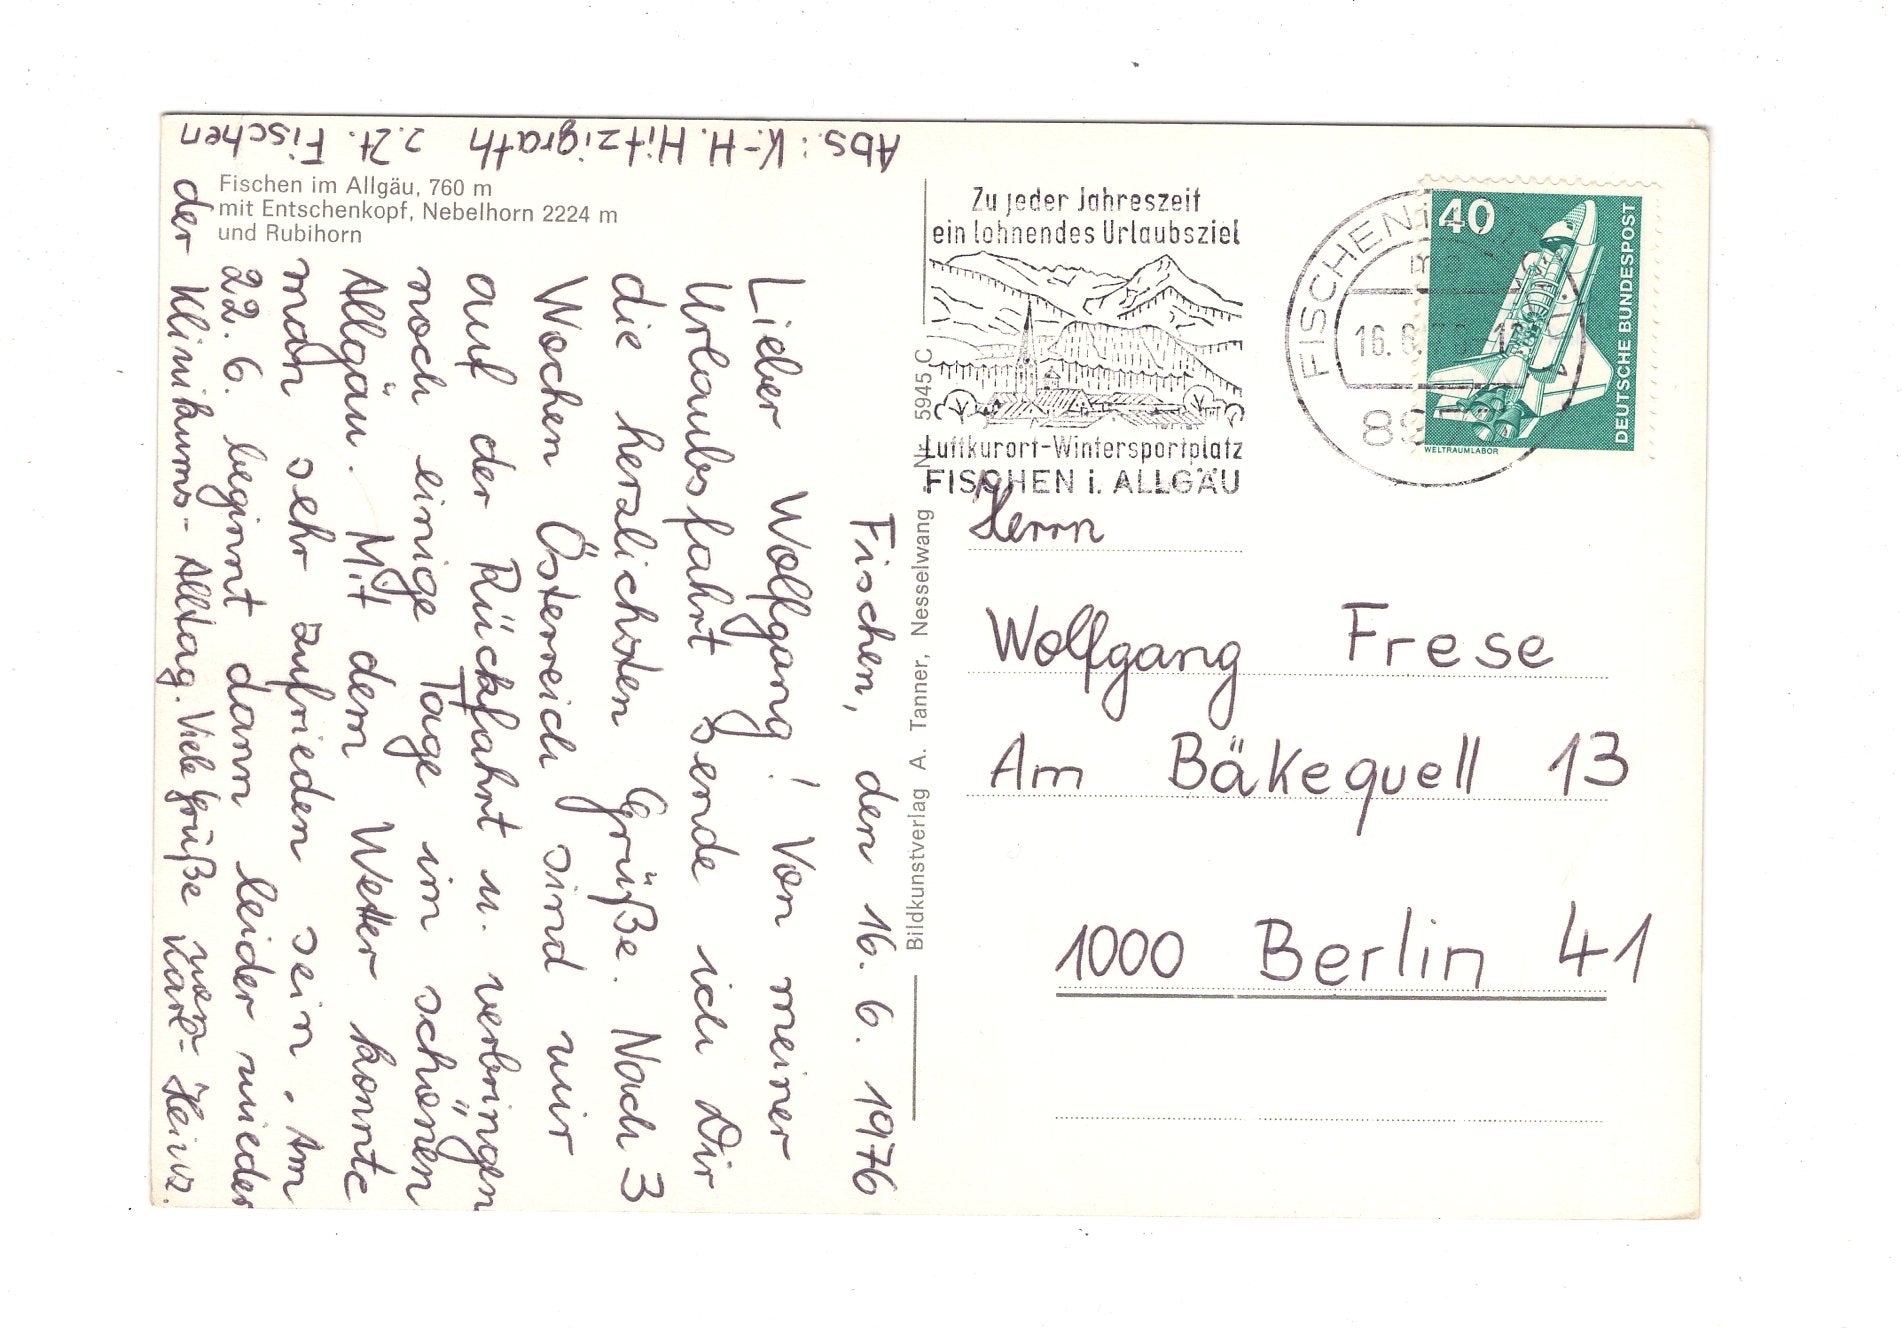 Abs.: K.-H. Hitzigrath z.Zt. Fischen
Fischen im Allgäu, 760 m
mit Entschenkopf, Nebelhorn 2224 m
und Rubihorn
Fischen, den 16. 6. 1976
Lieber Wolfgang! Von meiner
Urlaubsfahrt sende ich Dir
die herzlichsten Grüße. Nach 3
Wochen Österreich sind wir
auf der Rückfahrt u. verbringen
noch einige Tage im schönen
Allgäu. Mit dem Wetter konnte
man sehr zufrieden sein. Am
22. 6. beginnt dann leider wieder
der Klinikums-Alltag. Viele Grüße von
Karl-Heinz.
Bildkunstverlag A. Tanner, Nesselwang - Nr. 5945 C
Zu jeder Jahreszeit
ein lohnendes Urlaubsziel
Luftkurort-Wintersportplatz
FISCHEN i. ALLGÄU
FISCHEN i.
16. 6.
40
DEUTSCHE BUNDESPOST
WELTRAUMLABOR
Herrn
Wolfgang Frese
Am Bäkequell 13
1000 Berlin 41